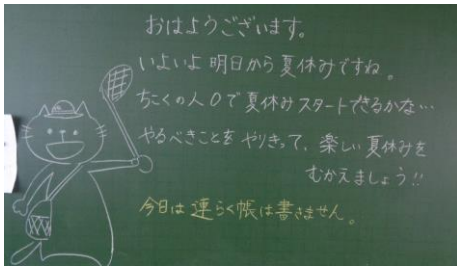 おはようございます。
いよいよ明日から夏休みですね。
ちこくの人0で夏休みスタートできるかな…
やるべきことをやりきって、楽しい夏休みを
むかえましょう!!
今日は連らく帳は書きません。